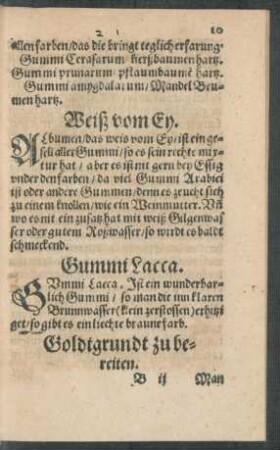 10
allen farben/das die bringt teglich erfarung.
Gummi Cerasarum/ kerßbaumen hartz.
Gummi prunarum/ pflaumbaumē hartz.
Gummi amygdalarum/ Mandel Beu-
men hartz.
Weiß vom Ey.
ALbumen/das weis vom Ey/ist ein ge-
sell aller Gummi/so es sein rechte mix-
tur hat/aber es ist nit gern bey Essig
vnder den farben/da viel Gummi Arabici
ist oder andere Gummen/denn es zeucht sich
zu einem knollen/wie ein Weinmutter. Vñ
wo es nit ein zusatz hat mit weiß Gilgenwas
ser oder gutem Roßwasser/so wirdt es baldt
schmeckend.
Gummi Lacca.
GVmmi Lacca. Ist ein wunderbar-
lich Gummi/ so man die inn klaren
Brunnwasser (klein zerstossen) erhitzi
get/so gibt es ein liechte braune farb.
Goldtgrundt zu be-
reiten.
B ij Man